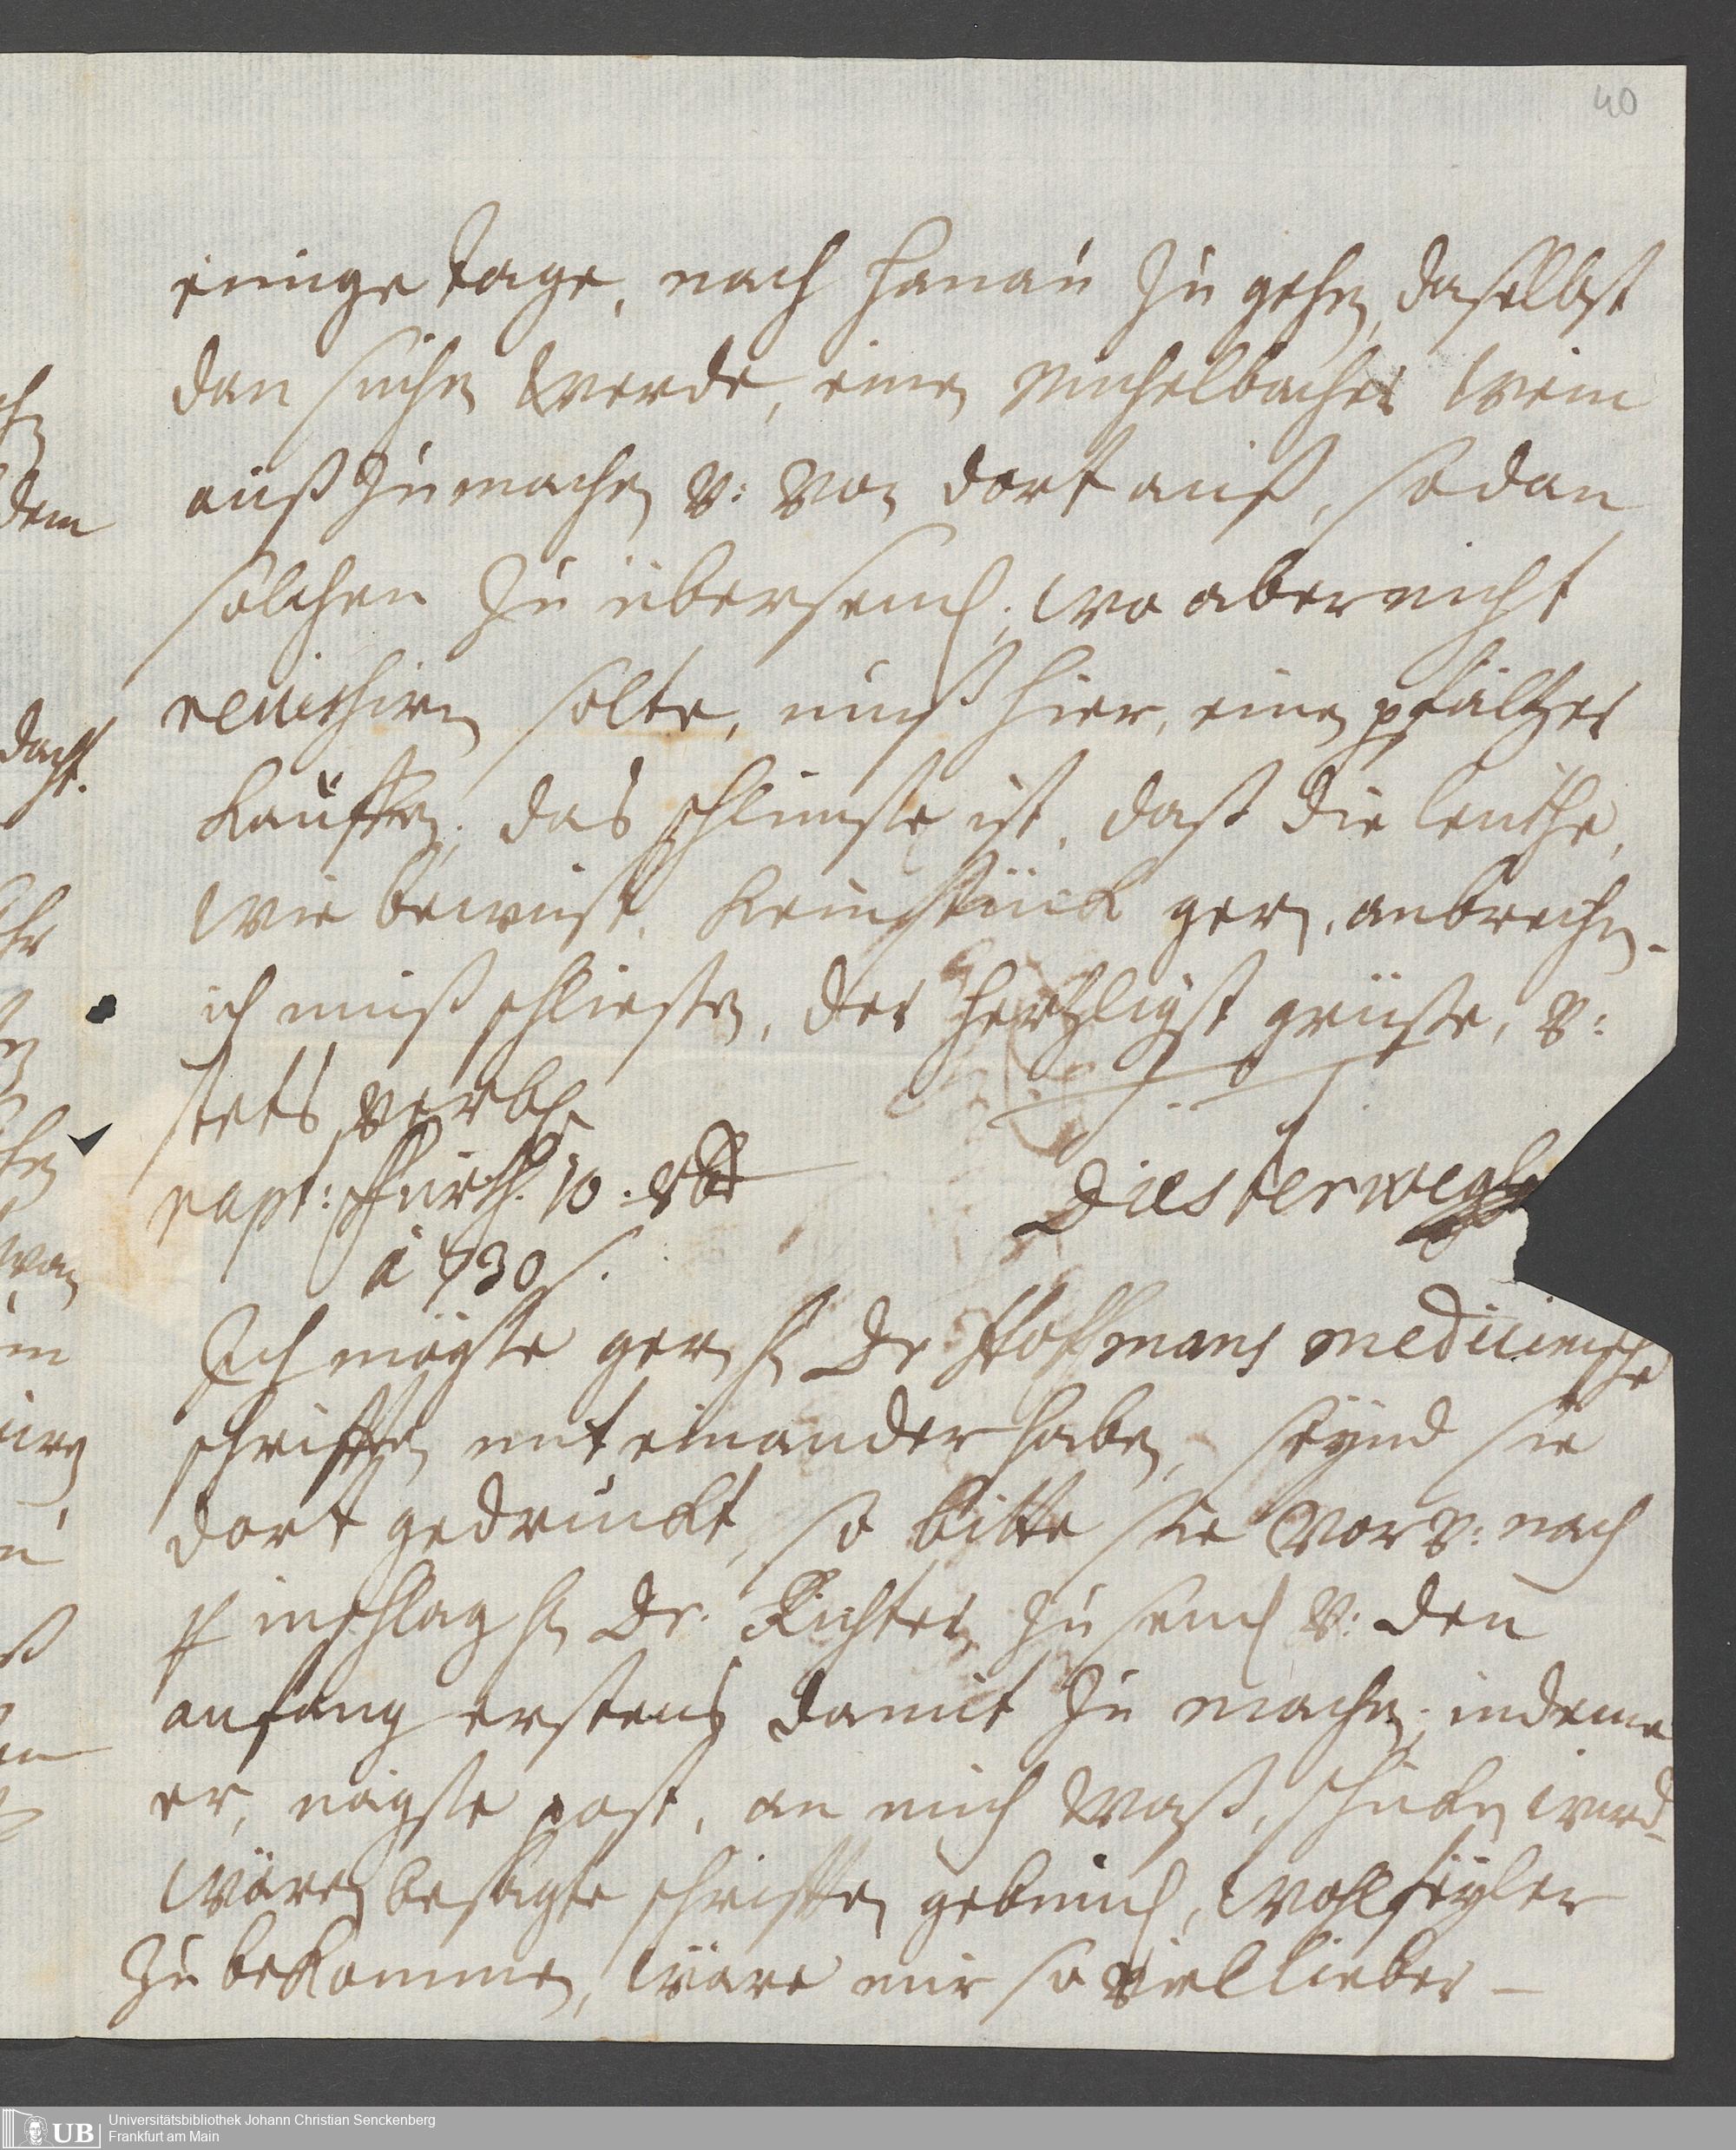 40
einige tage, nach Hanau zu gehen, daselbst
dan suchen werde, einen Michelbacher Wein
auß zu machen u: von dort auß, sodan
solchen zu übersend; wo aber nicht
reussiren solte, muß hier, einen pfältzer
kauffen; das schlimste ist, daß die leuthe,
wie bewust, kein stück gern, anbrechen.
ich muß schliesen, der hertzligst grüse, u:
stets verbl.
rapt: Ffurth. 10. 8br
à 730
Diesterweg
Ich mögte gern H Dr Hoffmans medicinische
schrifften mit einander haben, seynd sie
dort gedruckt, so bitte sie vor u: nach
p inschlag H Dr. Richter, zu send u: den
anfang erstens damit zu machen; indeme
er, nägste post, an mich waß, schicken wird
wären besagte schrifften gebund, wohlfeyler
zu bekommen, wäre mir so viel lieber –
dem
dacht.
Universitätsbibliothek Johann Christian Senckenberg
Frankfurt am Main
UB